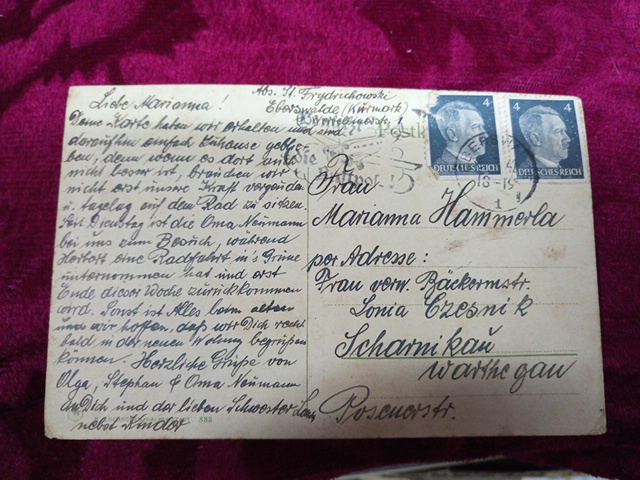 Abs. St. Frydrichowski
Eberswalde (Kurmark)
Liebe Marianna!
Deine Karte haben wir erhalten und sind
daraufhin einfach zuhause geblie-
ben, denn wenn es dort auch
nicht besser ist, brauchen wir
nicht erst unsere Kraft vergeuden
u. tagelag auf dem Rad zu sitzen.
Seit Dienstag ist die Oma Neumann
bei uns zum Besuch, während
Herbart eine Radfahrt in's Grüne
unternommen hat und erst
Ende dieser Woche zurückkommen
wird. Sonst ist Alles beim alten
und wir hoffen, daß wir Dich recht
bald in der neuen Wohnung begrüßen
können. Herzliche Grüße von
Olga, Stephan & Oma Neumann
an Dich und der lieben Schwester
nebst Kinder
Postk
4
4
DEUTSCHES REICH
DEUTSCHES REICH
18-19
1
Frau
Marianna Hammerla
per Adresse:
Frau verw. Bäckermstr.
Sonia Czesnik
Scharnikau
Warthegau
Posenerstr.